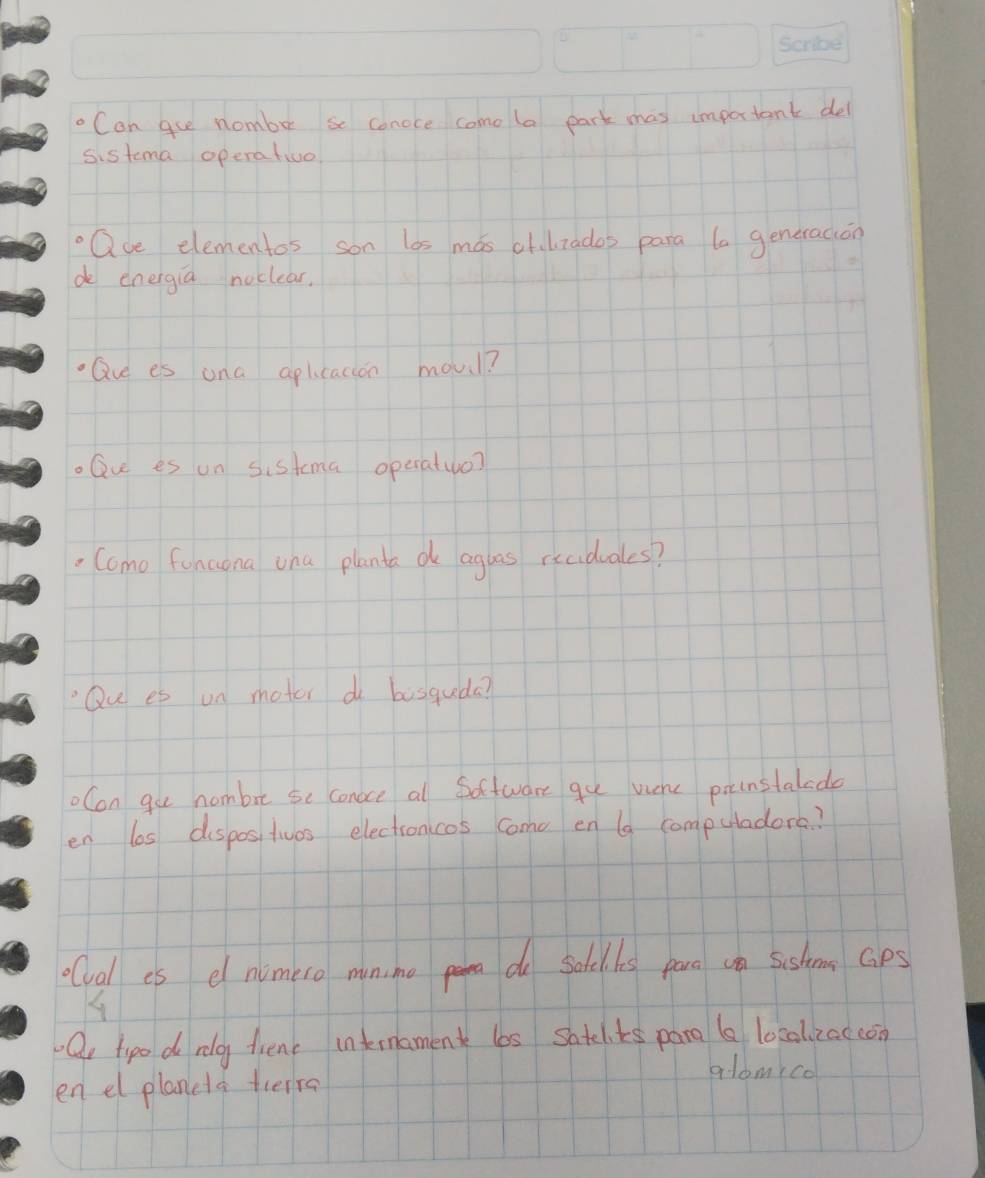 Scribe
• Con que nombre se conoce como la parte más importante del
sistema operativo.
• Que elementos son los más utilizados para la generación
de energía nuclear.
• Que es una aplicación movil?
• Que es un sistema operativo?
• Como funciona una planta de aguas reciduales?
• Que es un motor de búsqueda?
• Con que nombre se conoce al Software que viene preinstalado
en los dispositivos electronicos como en la computadora.?
• Cual es el número minimo de satelites para un sistema GPS
4
• Que tipo de reloj tiene internamente los satelites para la localización
atomico
en el planeta tierra